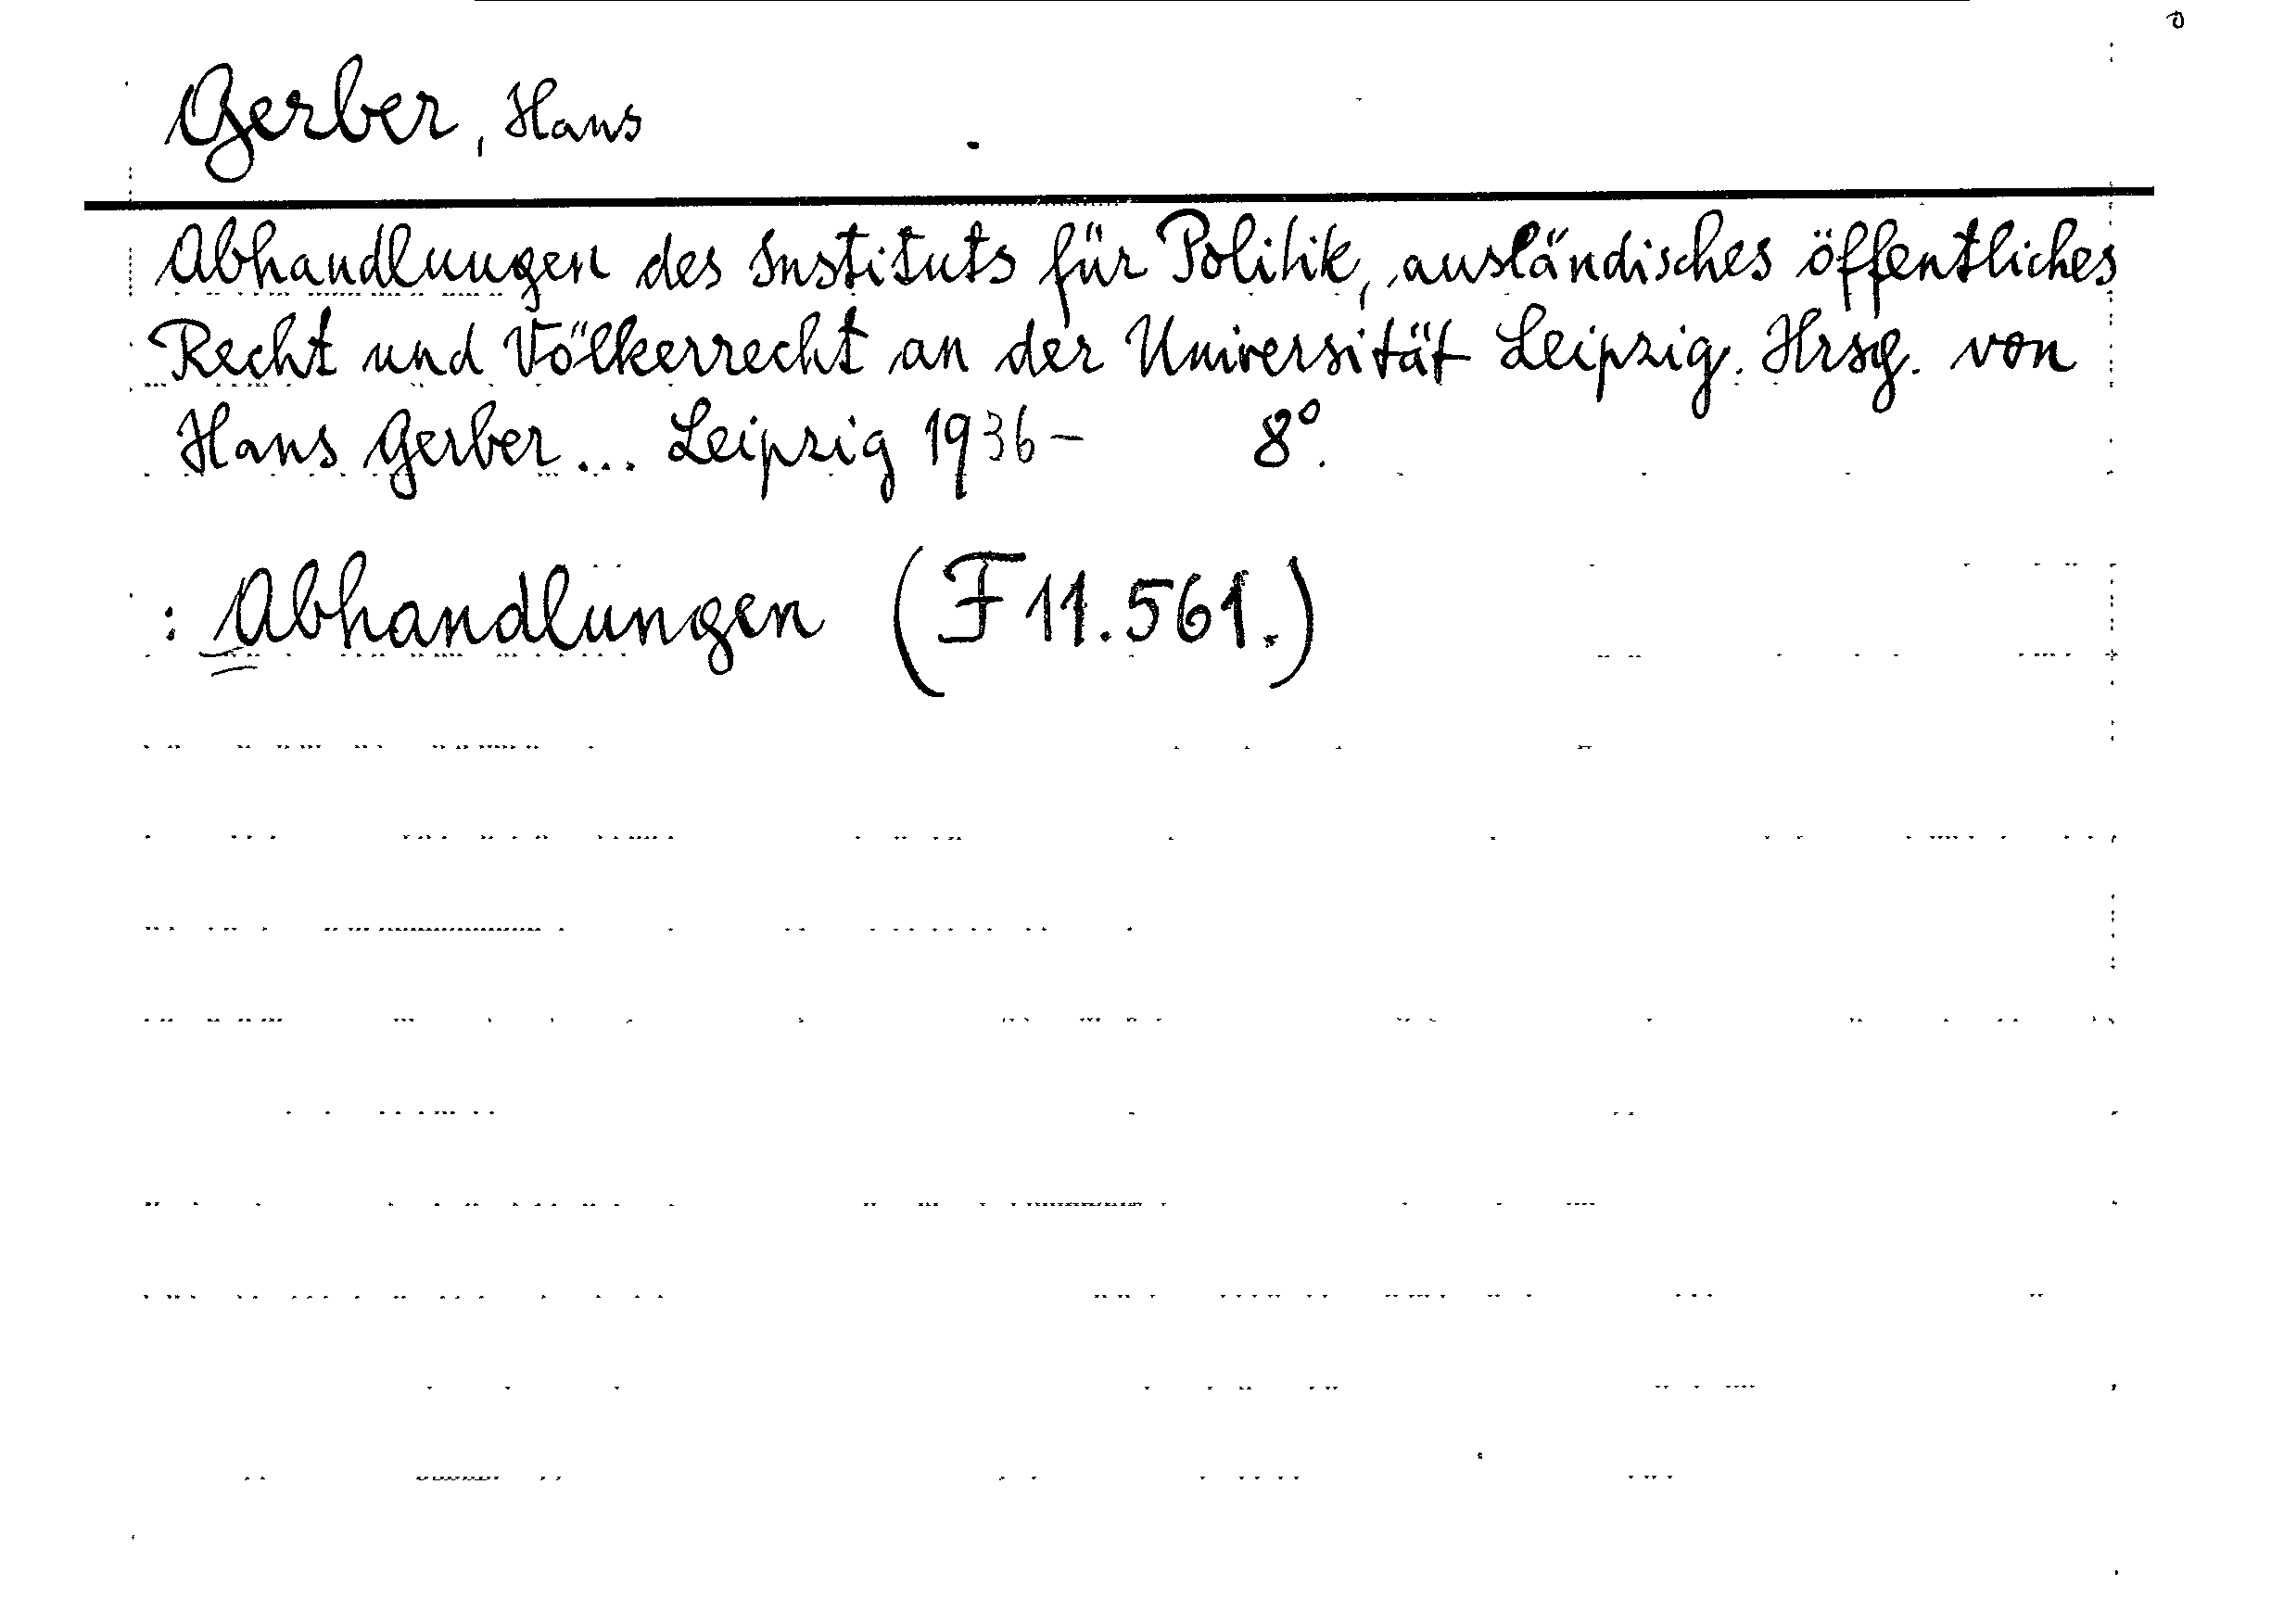 Gerber, Hans
Abhandlungen des Instituts für Politik, ausländisches öffentliches
Recht und Völkerrecht an der Universität Leipzig. Hrsg. von
Hans Gerber... Leipzig 1936- 8°.
: Abhandlungen (F 11.561.)